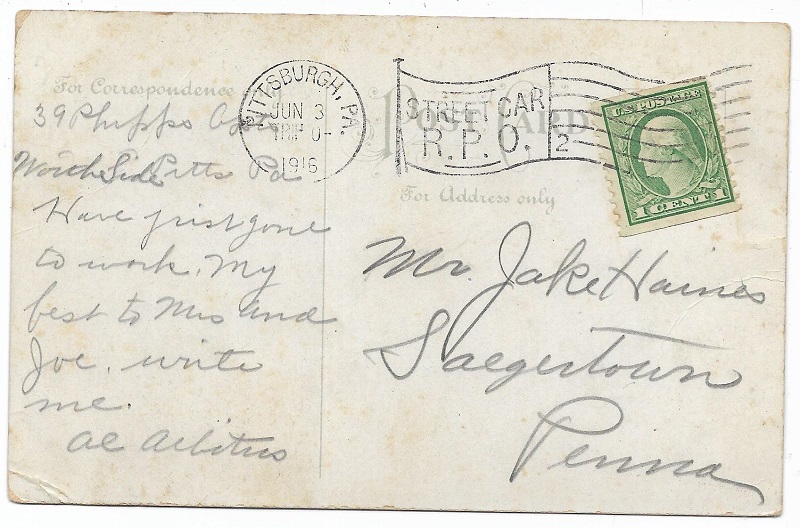 For Correspondence
39 Phipps Apts
North Side Pitts Pa
Have just gone
to work. My
best to Mrs and
Joe. write
me.
Al
PITTSBURGH, PA.
JUN 3
1916
STREET CAR
R.P.O.
2
POST CARD
U.S. POSTAGE
1 CENT 1
For Address only
Mr. Jake Haines
Saegertown
Penna